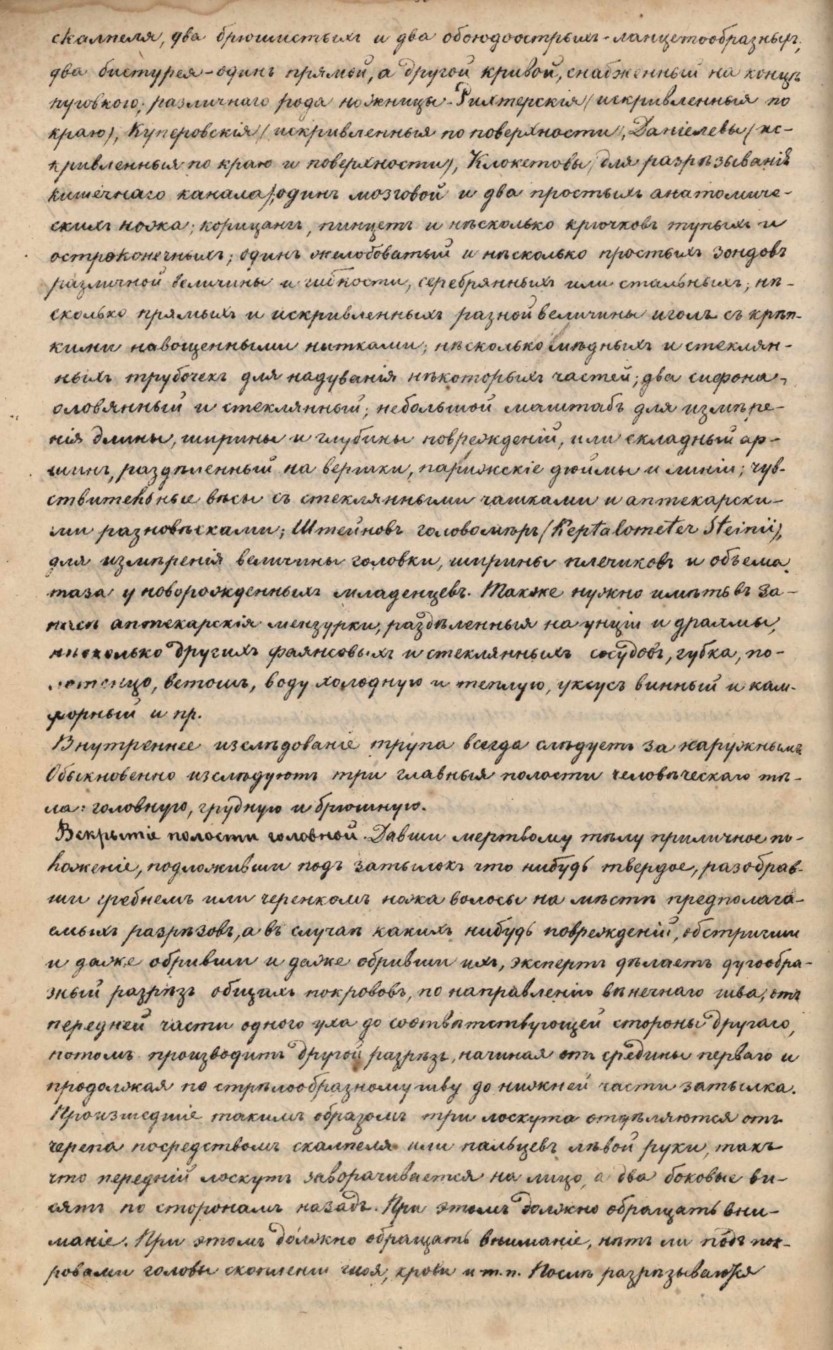 скалпеля, два брюшистыхъ и два обоюдоострыхъ-ланцетообразныхъ,
два бистурея-одинъ прямый, а другой кривой, снабженный на концѣ
пуговкою; различнаго рода ножницы-Рихтерскія /искривленныя по
краю/, Куперовскія /искривленныя по поверхности/, Даніелевы /ис-
кривленныя по краю и поверхности/, Клокетовы /для разрѣзыванія
кишечнаго канала/; одинъ мозговой и два простыхъ анатомиче-
скихъ ножа; корнцангъ, пинцетъ и нѣсколько крючковъ тупыхъ и
остроконечныхъ; одинъ желобоватый и нѣсколько простыхъ зондовъ
различной величины и гибкости, серебрянныхъ или стальныхъ; нѣ-
сколько прямыхъ и искривленныхъ разной величины иголъ съ крѣп-
кими навощенными нитками; нѣсколько мѣдныхъ и стеклян-
ныхъ трубочекъ для надуванія нѣкоторыхъ частей; два сифона,
оловянный и стеклянный; небольшой масштабъ для измѣре-
нія длины, ширины и глубины поврежденій, или складный ар-
шинъ, раздѣленный на вершки, парижскіе дюймы и линіи; чув-
ствительные вѣсы съ стеклянными чашками и аптекарски-
ми разновѣсками; Штейновъ головомѣръ /Keptalometer Steinii/,
для измѣренія величины головки, ширины плечиковъ и объема
таза у новорожденныхъ младенцевъ. Также нужно имѣть въ за-
пасѣ аптекарскія мензурки, раздѣленныя на унціи и драхмы,
нѣсколько другихъ фаянсовыхъ и стеклянныхъ сосудовъ, губка, по-
лотенцо, ветошь, воду холодную и теплую, уксусъ винный и кам-
форный и пр.
Внутреннее изслѣдованіе трупа всегда слѣдуетъ за наружнымъ
Обыкновенно изслѣдуютъ три главныя полости человѣческаго тѣ-
ла: головную, грудную и брюшную.
Вскрытіе полости головной. Давши мертвому тѣлу приличное по-
ложеніе, подложивши подъ затылокъ что нибудь твердое, разобрав-
ши гребнемъ или черенкомъ ножа волосы на мѣстѣ предполага-
емыхъ разрѣзовъ, а въ случаѣ какихъ нибудь поврежденій, обстригши
и даже обривши и даже обривши ихъ, экспертъ дѣлаетъ дугообра-
зный разрѣзъ общихъ покрововъ, по направленію вѣнечнаго шва, отъ
передней части одного уха до соотвѣтствующей стороны другаго,
потомъ производитъ другой разрѣзъ, начиная отъ средины перваго и
продолжая по стрѣлообразному шву до нижней части затылка.
Происшедшіе такимъ образомъ три лоскута отдѣляются отъ
черепа посредствомъ скалпеля или пальцевъ лѣвой руки, такъ
что передній лоскутъ заворачивается на лицо, а два боковые ви-
сятъ по сторонамъ назадъ. При этомъ должно обращать вни-
маніе. При этомъ должно обращать вниманіе, нѣтъ ли подъ пок-
ровами головы скопленіи гноя, крови и т.п. Послѣ разрѣзываются